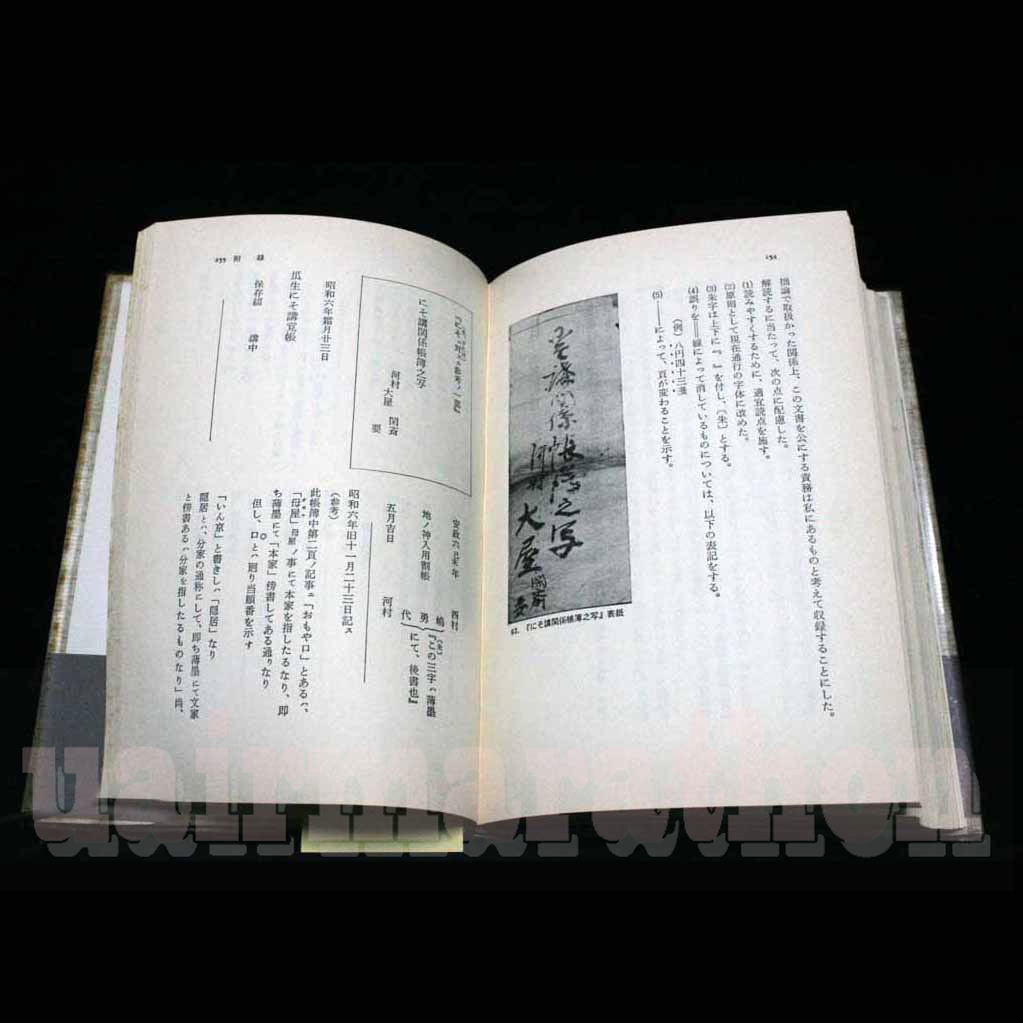 252
拙論で取扱かった関係上、この文書を公にする責務は私にあるものと考えて収録することにした。
解読するに当たって、次の点に配慮した。
(1)読みやすくするために、適宜読点を施す。
(2)原則として現在通行の字体に改めた。
(3)朱字は上下に『 』を付し、〔朱〕とする。
(4)誤りを——線によって消しているものについては、以下の表記をする。
(例) 八円四十三戔
(5)——によって、頁が変わることを示す。
講関係帳簿之写
河村
大屋
62. 『にそ講関係帳簿之写』表紙
253 附 録
にそ講関係帳簿之写
河村大屋 閑斎
要
昭和六年霜月廿三日
瓜生にそ講宮帳
保存紹
講中
安政六己未年 西村
地ノ神入用割帳
嶋
勇
代
〔朱〕
『この三字ハ薄墨
にて、後書也』
五月吉日 河村
昭和六年旧十一月二十三日記ス
(参考)
此帳簿中第二頁ノ記事ニ「おもや口」とあるハ、
「母屋」母屋ノ事にて本家を指したるなり、即
ち薄墨にて「本家」傍書してある通りなり
但し、口とハ廻り当順番を示す
「いん京」と書きし八「隠居」なり
隠居とハ、分家の通称にして、即ち薄墨にて文家
と傍書ある(分家を指したるものなり」尚、
uairmarathon